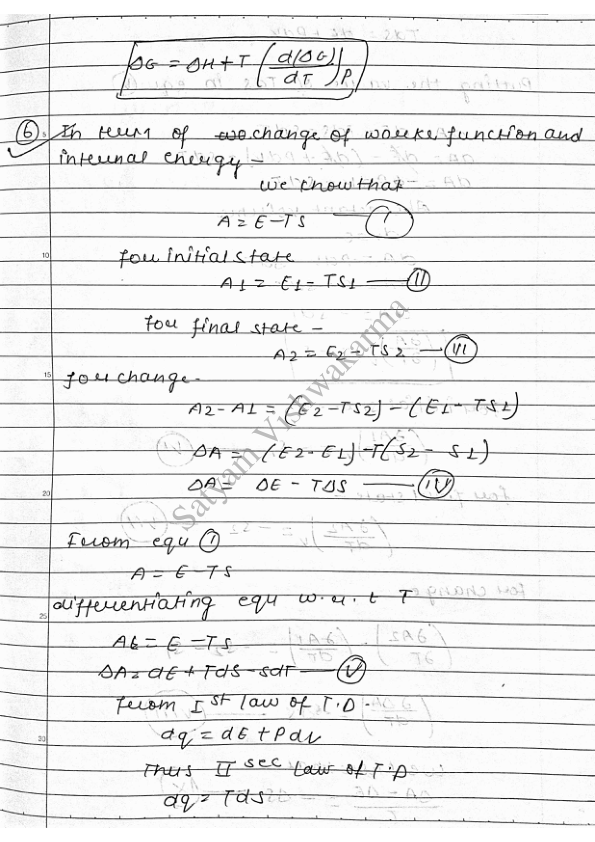 ΔG = ΔH + T (d(ΔG)/dT)P
⑥ In term of change of worke function and
internal energy –
we know that
A = E – TS — I
for initial state
A1 = E1 – TS1 — II
for final state –
A2 = E2 – TS2 — III
for change –
A2 – A1 = (E2 – TS2) – (E1 – TS1)
ΔA = (E2 – E1) – T(S2 – S1)
ΔA = ΔE – TΔS — IV
From equ ①
A = E – TS
differentiating equ w.r.t T
At = E – TS
ΔA = dE + TdS – SdT — V
from Ist law of T.D.
dq = dE + Pdv
Thus II sec law of T.D
dq = TdS
Satyam Vishwakarma